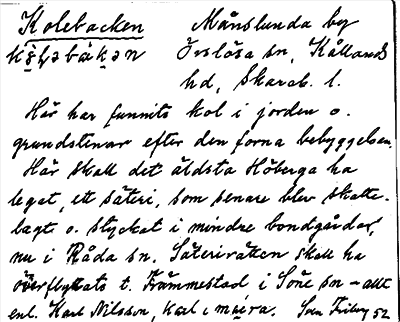 Kolebacken Månslunda by
kọ̄ḷəbàkən Örslösa sn, Kållands
hd, Skarab. l.
Här har funnits kol i jorden o.
grundstenar efter den forna bebyggelsen.
Här skall det äldsta Höberga ha
legat, ett säteri, som senare blev skatte-
lagt o. styckat i mindre bondgårdar,
nu i Råda sn. Säterirätten skall ha
överflyttats t. Främmestad i Söne sn - allt
enl. Karl Nilsson, Karl i Sven Friberg 52